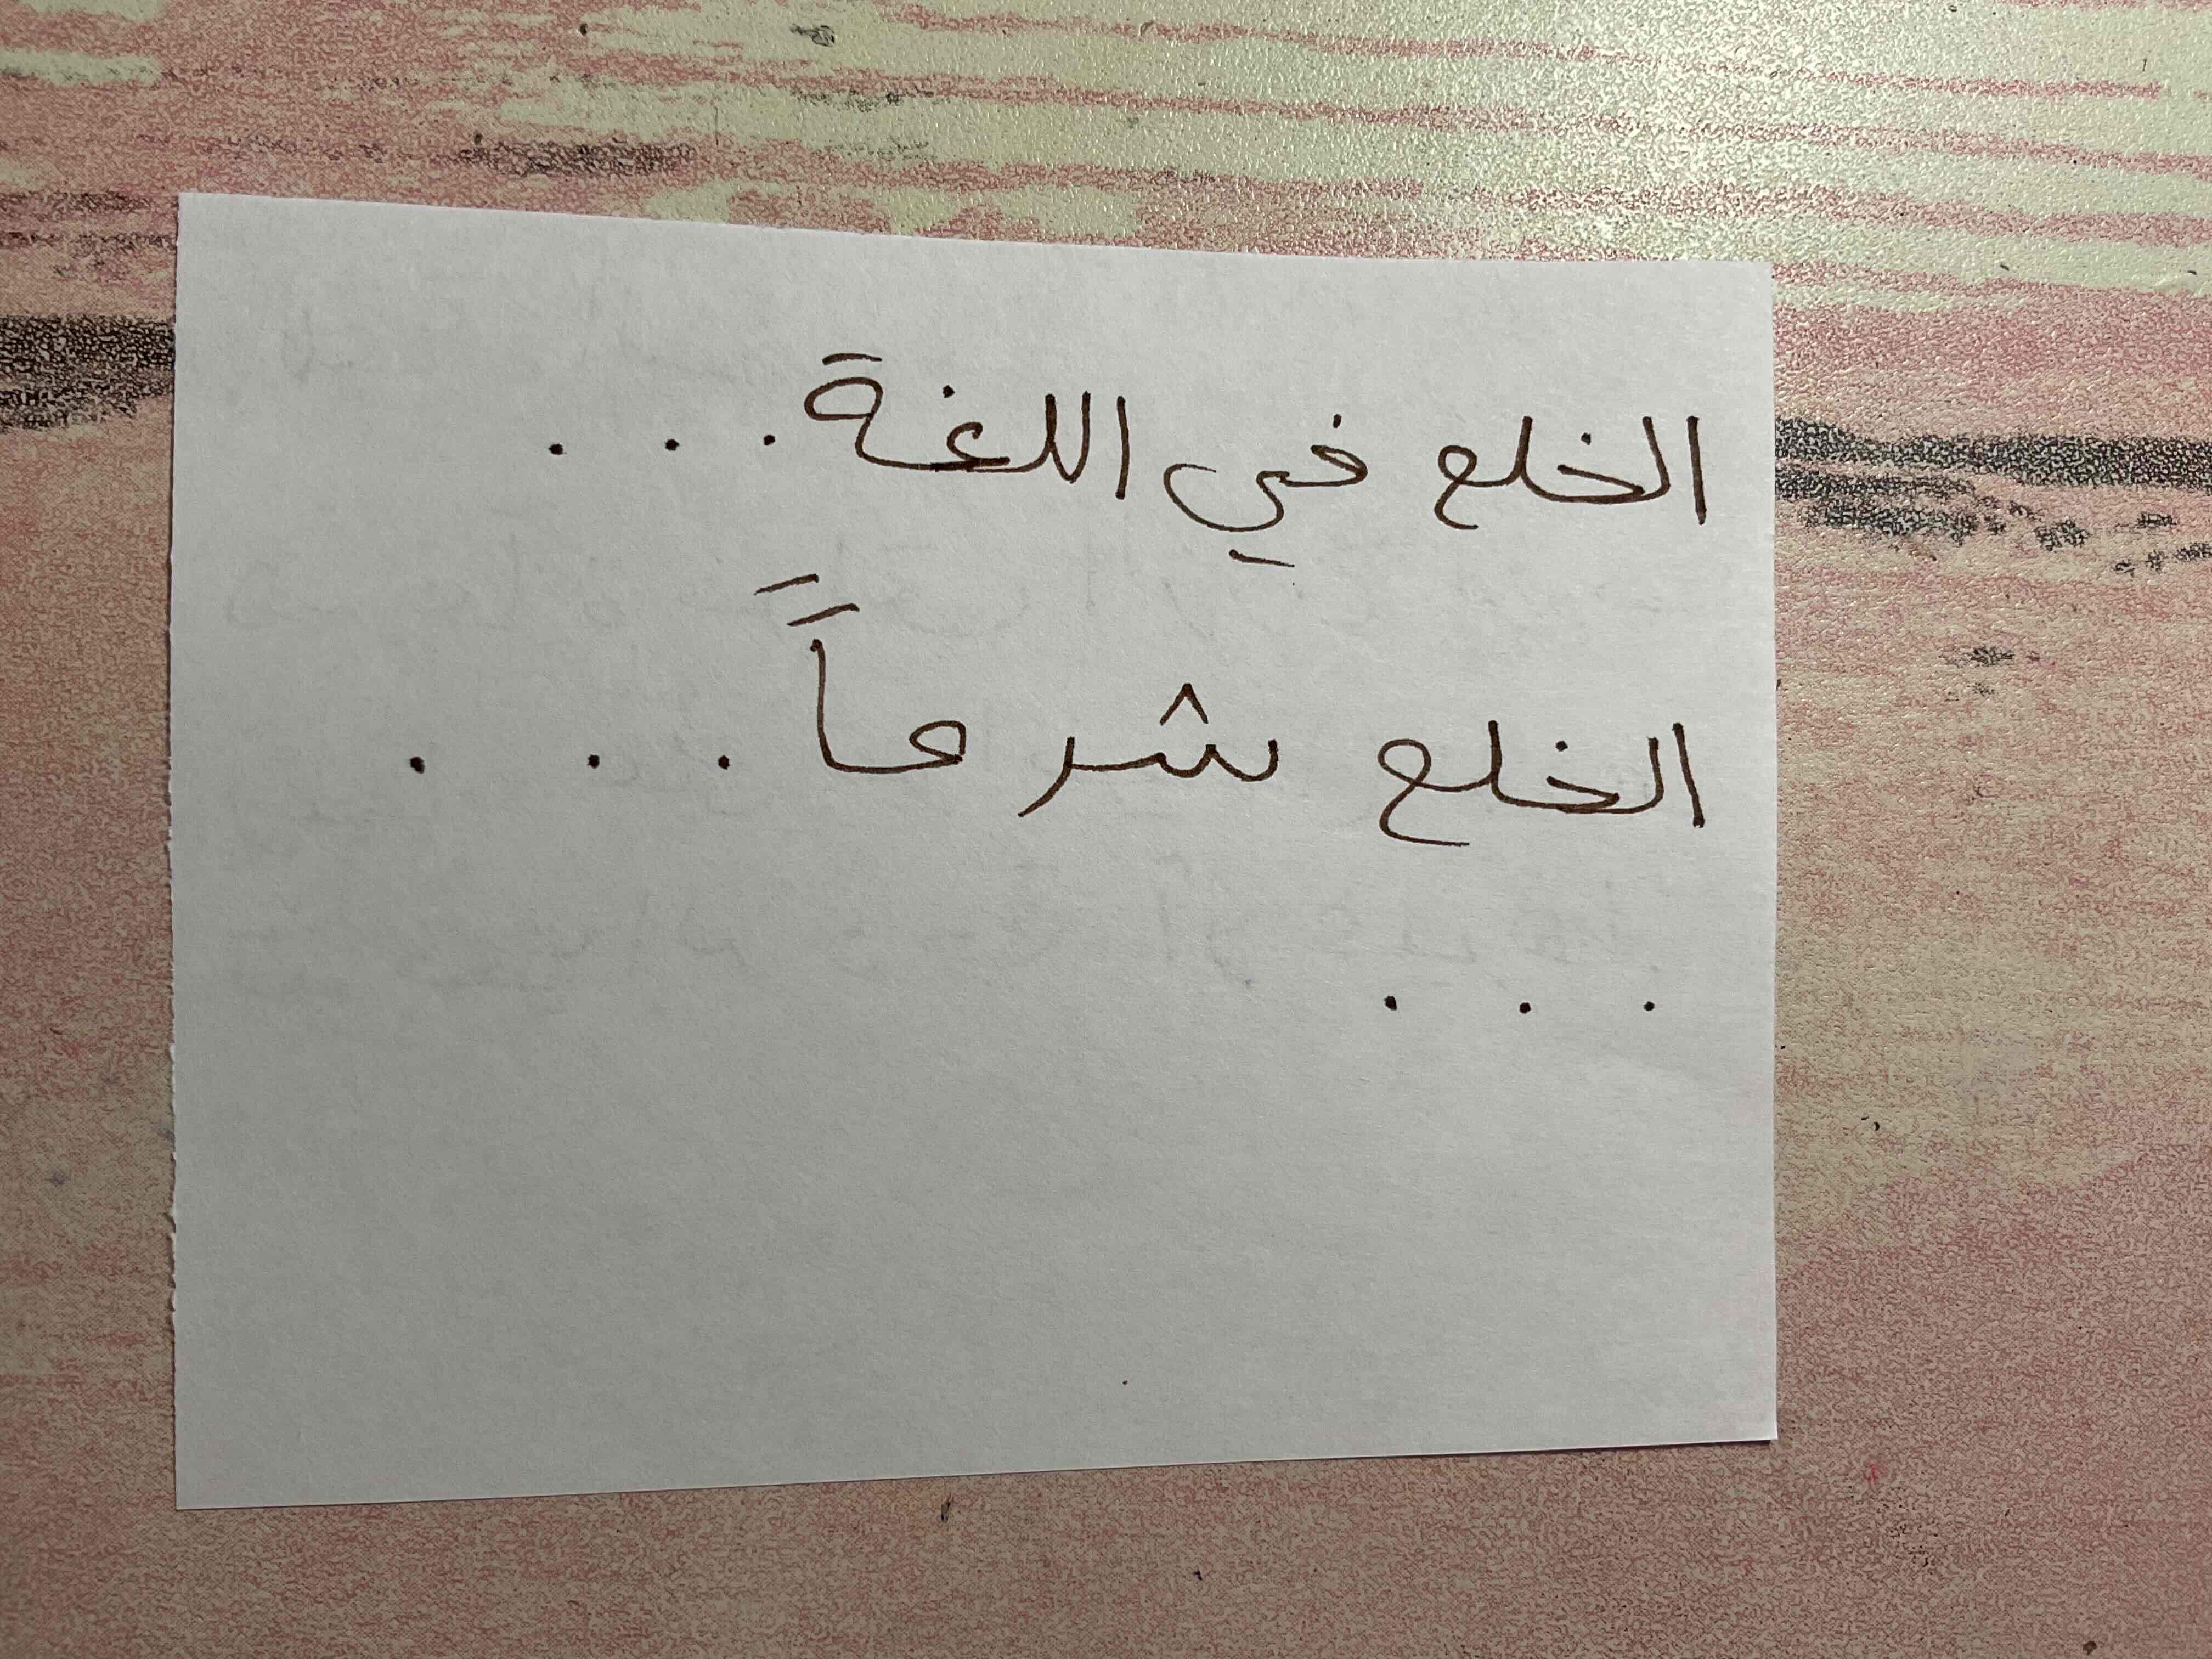 الخلع في اللغة . . .
الخلع شرعاً . . .
. . .